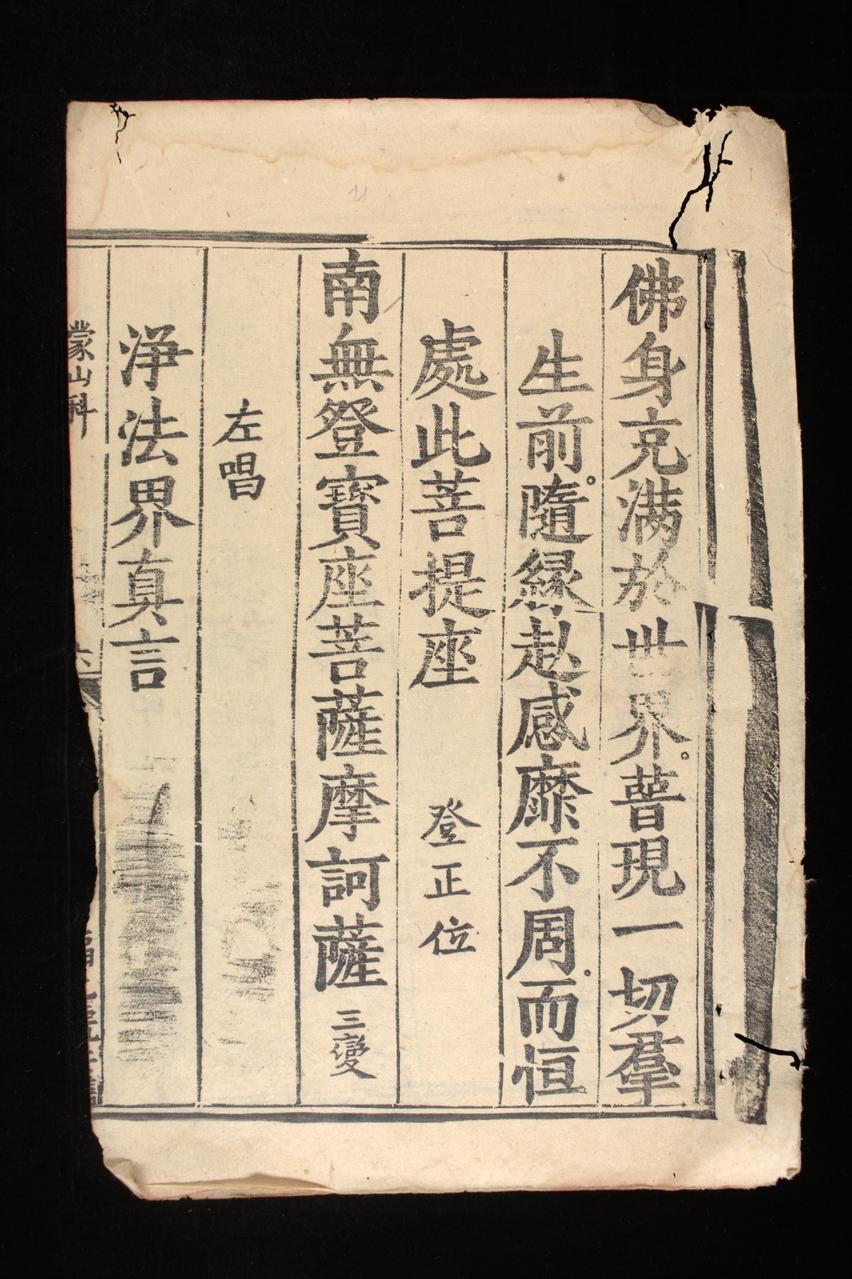 佛身充满於世界。普現一切羣
生前。隨縁赴感靡不周。而恒
處此菩提座 登正位
南無登寶座菩薩摩訶薩 三變
左唱
浄法界真言
蒙山科